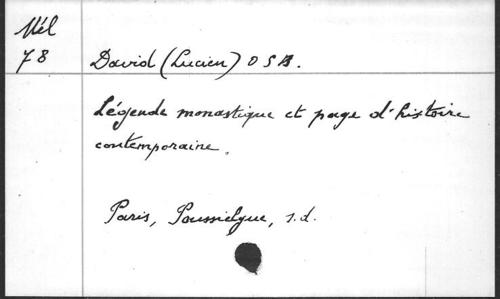 Mél
78
David (Lucien) OSB.
Légende monastique et page d'histoire
contemporaine.
Paris, Poussielgue, s.d.